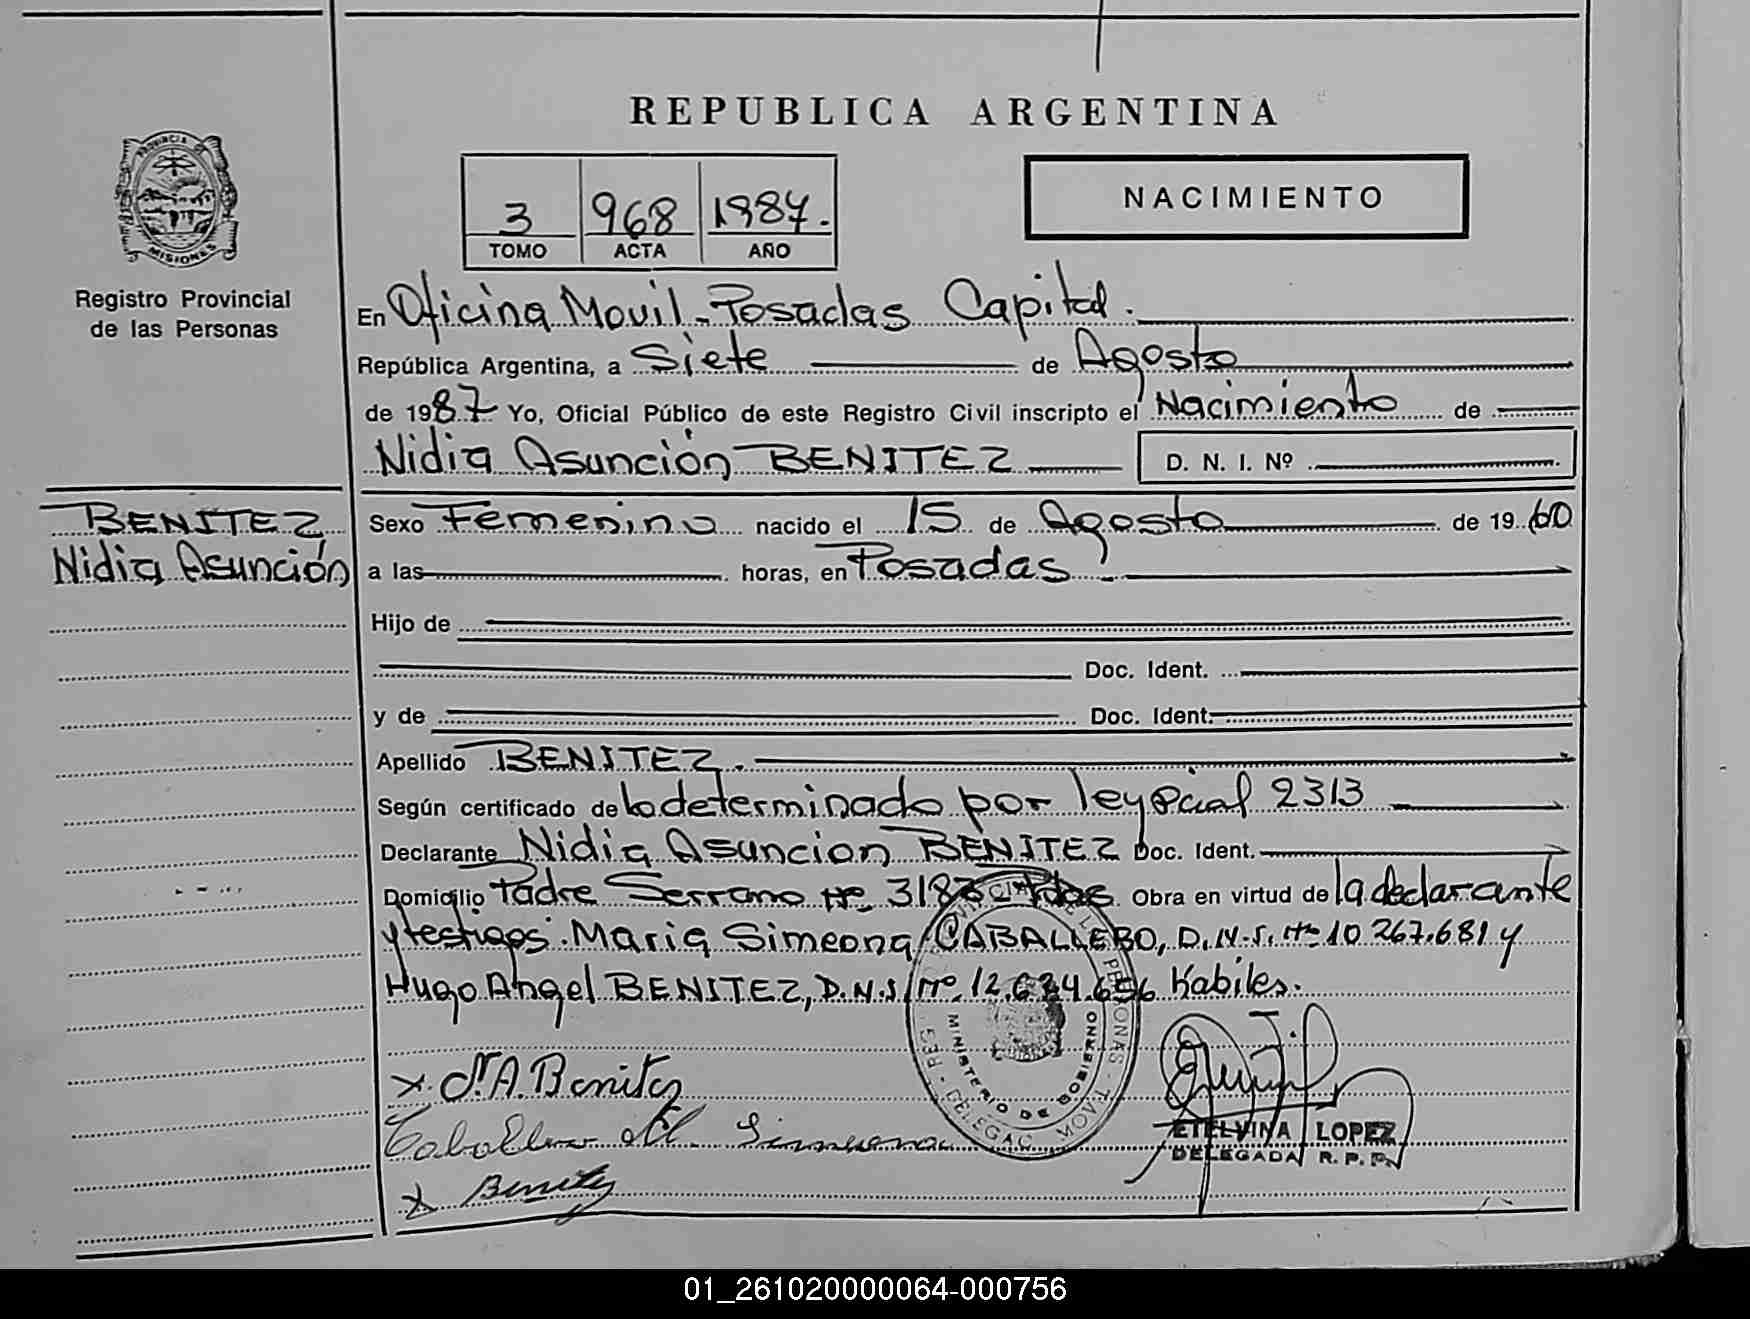 REPUBLICA ARGENTINA
PROVINCIA DE
MISIONES
Registro Provincial
de las Personas
3 968 1987.
TOMO ACTA AÑO
NACIMIENTO
En Oficina Movil - Posadas Capital.
República Argentina, a Siete de Agosto
de 1987 Yo, Oficial Público de este Registro Civil inscripto el Nacimiento de
Nidia Asunción BENITEZ D. N. I. Nº
BENITEZ
Nidia Asunción
Sexo Femenino nacido el 15 de Agosto de 1960
a las horas, en Posadas.
Hijo de
Doc. Ident.
y de Doc. Ident.
Apellido BENITEZ.
Según certificado de lo determinado por ley 2313
Declarante Nidia Asuncion BENITEZ Doc. Ident.
Domicilio Padre Serrano Nº Obra en virtud de la declarante
y testigos. Maria Simeona CABALLERO, D.N.I. Nº 10 267.681 y
Hugo Angel BENITEZ, D.N.I. Nº 12.634.656 habiles.
MINISTERIO DE GOBIERNO
x N.A. Benitez
Caballero M. Simeona
x Benitez
ETELVINA LOPEZ
DELEGADA R. P. P.
01_261020000064-000756